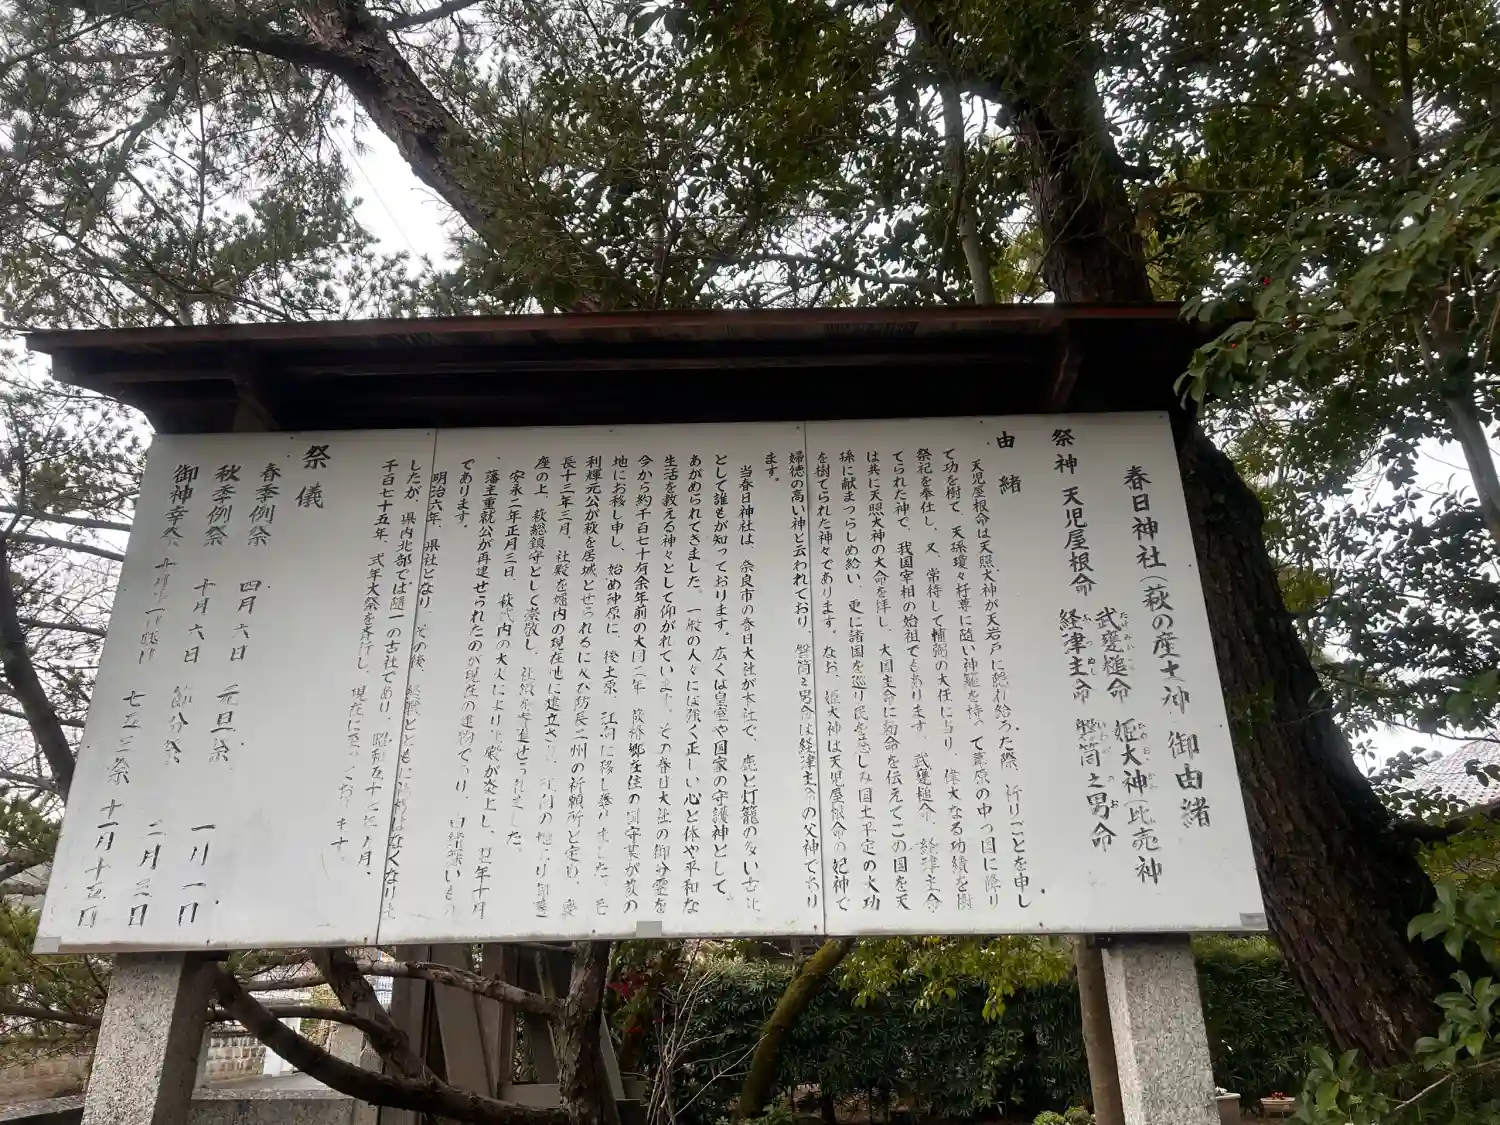 春日神社(萩の産土神)御由緒
祭神 天児屋根命 武甕槌命 姫大神(比売神
経津主命 磐筒之男命
由緒
天児屋根命は天照大神が天岩戸に隠れ給ろた際、祈りごとを申し
て功を樹て、天孫瓊々杵尊に随い神籬を持って葦原の中つ国に降り
祭祀を奉仕し、又、常待して輔弼の大任に当り、偉大なる功績を樹
てられた神で、我国宰相の始祖でもあります。武甕槌命、経津主命
は共に天照大神の大命を拝し、大国主命に勅命を伝えてこの国を天
孫に献まつらしめ給い、更に諸国を巡り民を慈しみ国土平定の大功
を樹てられた神々であります。なお、姫大神は天児屋根命の妃神で
婦徳の高い神と云われており、磐筒之男命は経津主命の父神であり
ます。
当春日神社は、奈良市の春日大社が本社で、鹿と灯籠の多い古社
として誰もが知っております。広くは皇室や国家の守護神として、
あがめられてきました。一般の人々には強く正しい心と体や平和な
生活を教える神々として仰がれています。その春日大社の御分霊を
今から約千百七十有余年前の大同二年、萩の
地にお移し申し、始め神原に、後土原、江向に移し奉りました。毛
利輝元公が萩を居城とせられるに及び防長二州の祈願所と定め、慶
長十三年三月、社殿を堀内の現在地に建立され、江向の地より御遷
座の上、萩総鎮守として崇敬し、社領を寄進せられました。
安永二年正月三日、萩城内の大火により社殿が炎上し、翌年十月
、藩主重就公が再建せられたのが現在の建物であり、由緒深いもの
であります。
明治六年、県社となり、その後、終戦とともに社格はなくなりま
したが、県内北部では随一の古社であり、昭和五十七年十月、
千百七十五年、式年大祭を斉行し、現在に至っております。
祭儀
春季例祭 四月六日 元旦祭 一月一日
秋季例祭 十月六日 節分祭 二月三日
御神幸祭 七五三祭 十一月十五日